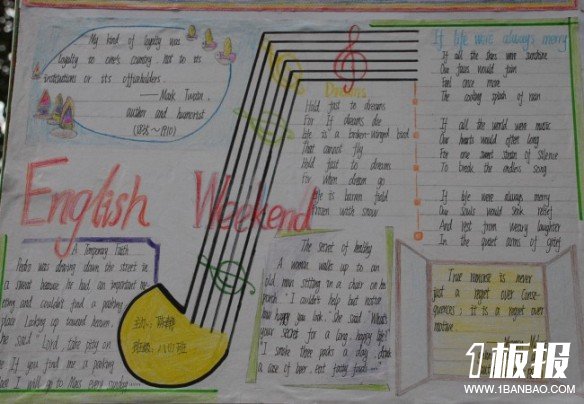 My kind of loyalty was
loyalty to one's country, not to its
institutions or its officeholders.
——Mark Twain.
author and humorist
(1835～1910)
Dreams
Hold fast to dreams
For If dreams die
life is a broken-winged bird
That cannot fly
Hold fast to dreams
For when dream go
life is barren field
frozen with snow
If life were always merry
If all the skies were sunshine
Our faces would fain
Feel once more
The cooling splash of rain
If all the world were music
Our hearts would often long
For one sweet strain of silence
To break the endless song
If life were always merry
Our souls would seek relief
And rest from weary laughter
In the quiet arms of grief
English Weekend
A Temporary Faith
Pedro was driving down the street in
a sweat because he had an important me
eting and couldn't find a parking
place. Looking up toward heaven,
he said "Lord, take pity on
me If you find me a parking
I will go to Mass every sunday
八(1)班
The secret of healthy
A woman walks up to an
old man sitting in a chair on his
porch. "I couldn't help but notice
how happy you look," She said "What's
your secret for a long happy life?"
"I smoke three packs a day, drink
a case of beer, eat fatty foods
True remorse is never
just a regret over conse-
quences; it is a regret over
motive.
1板报
WWW.1BANBAO.COM